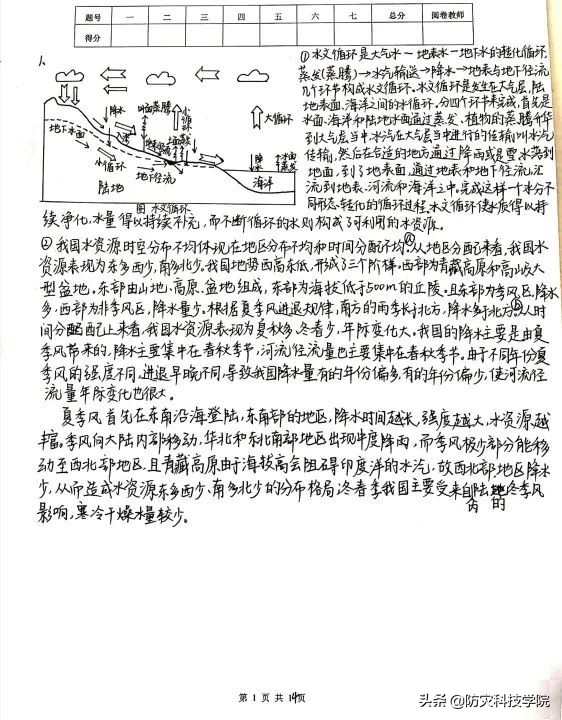 题号 一 二 三 四 五 六 七 总分 阅卷教师
得分
1.
降水
地面蒸腾
小循环
大循环
地下水面
入渗
小循环
地下径流
陆地
降水
水面蒸发
海洋
图 水文循环
①水文循环是大气水-地表水-地下水的转化循环
蒸发(蒸腾)→水气输送→降水→地表与地下径流
几个环节构成水文循环。水文循环是发生在大气层,陆
地表面,海洋之间的水循环,分四个环节来完成,首先是
水面、海洋和陆地水面通过蒸发、植物的蒸腾升华
到大气层当中,水汽在大气层当中进行的传输叫水汽
传输,然后在合适的地方通过降雨或是雪水落到
地面,到了地表面,通过地表和地下径流,汇
流到地表、河流和海洋之中,完成这样一个水分不
同形态转化的循环过程。水文循环使水质得以持
续净化,水量得以持续补充,而不断循环的水则构成了可利用的水资源。
②我国水资源时空分布不均体现在地区分布不均和时间分配不均。从地区分配来看,我国水
资源表现为东多西少,南多北少。我国地势西高东低,形成了三个阶梯。西部为青藏高原和高山峻大
型盆地。东部由山地、高原、盆地组成,东部为海拔低于500m的丘陵。且东部为季风区,降水
多,西部为非季风区,降水量少。根据夏季风进退规律,南方的雨季长于北方,降水多于北方。从时
间分配上来看,我国水资源表现为夏秋多,冬春少,年际变化大。我国的降水主要是由夏
季风带来的,降水主要集中在春秋季节,河流径流量也主要集中在春秋季节。由于不同年份夏
季风的强度不同,进退早晚不同,导致我国降水量有的年份偏多,有的年份偏少,使河流径
流量年际变化也很大。
夏季风首先在东南沿海登陆,东南部的地区,降水时间越长,强度越大,水资源越
丰富。季风向大陆内部移动,华北和东北南部地区出现中度降雨,而季风极少部分能移
动至西北部地区,且青藏高原由于海拔高会阻碍印度洋的水汽,故西北部地区降水
少,从而造成水资源东多西少、南多北少的分布格局,冬春季我国主要受来自陆内的冬季风
影响,寒冷干燥水量较少。
第 1 页 共 14页
头条 @防灾科技学院